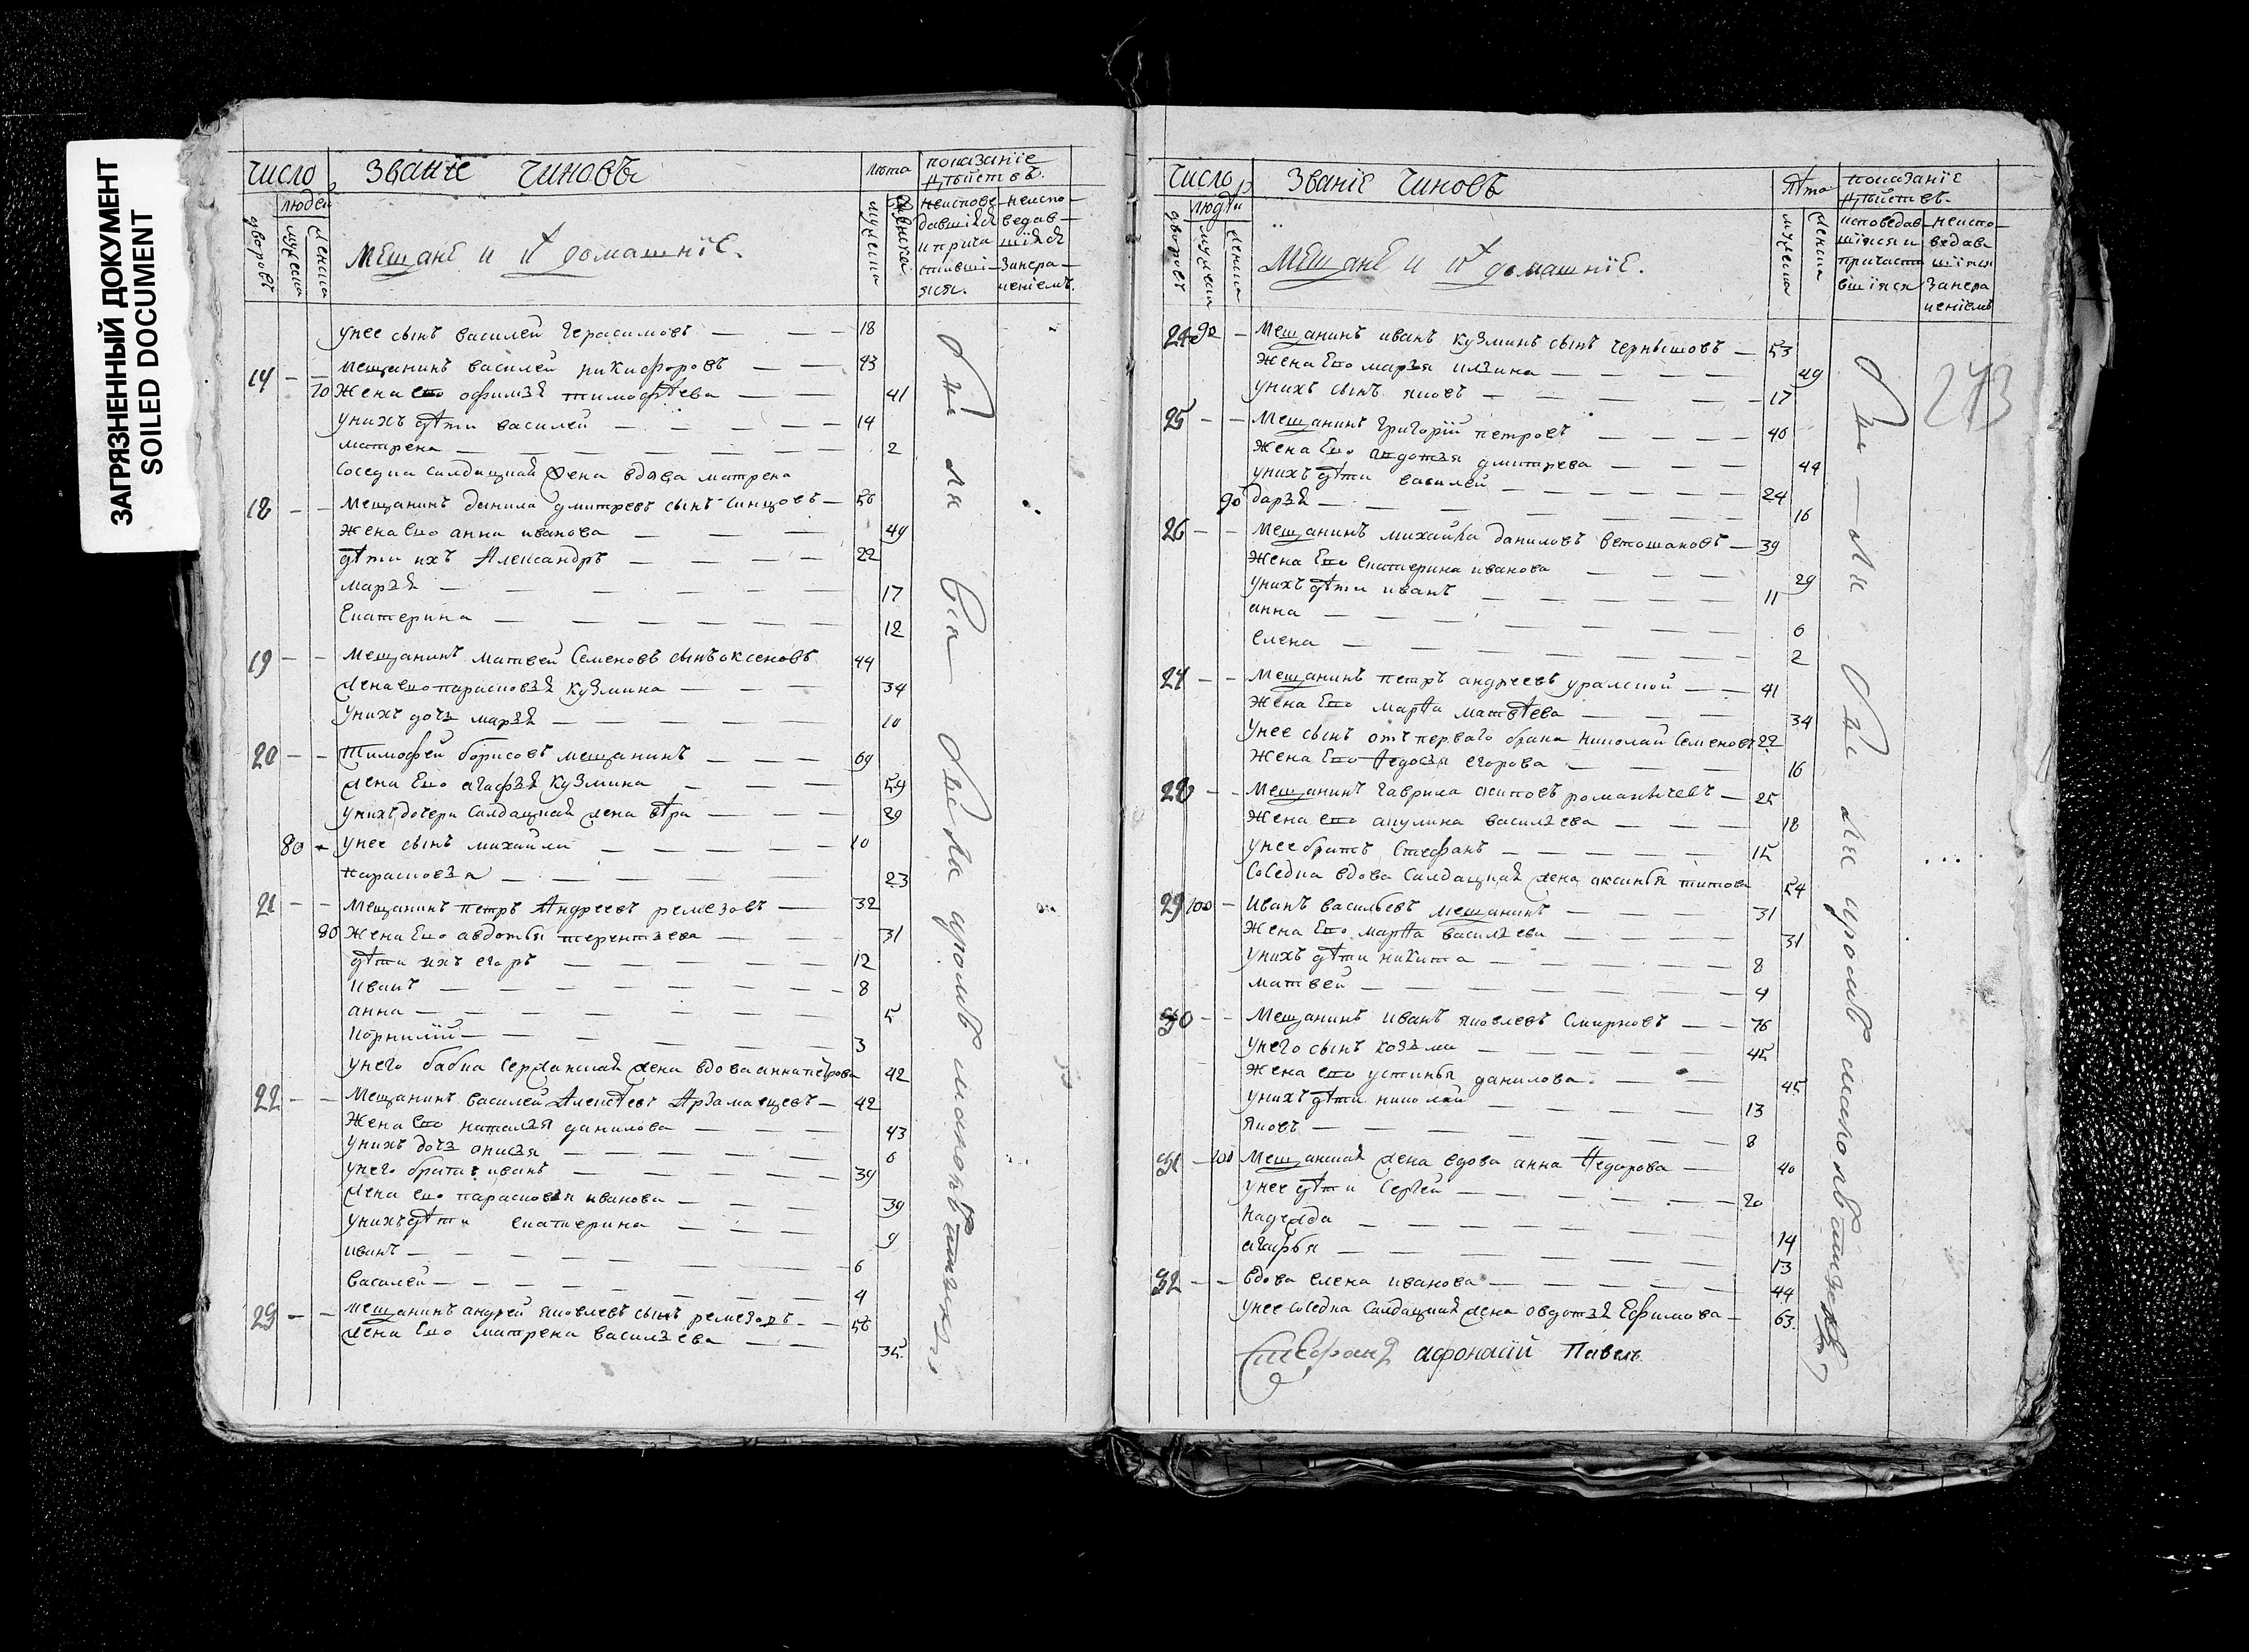 ЗАГРЯЗНЕННЫЙ ДОКУМЕНТ
SOILED DOCUMENT
число званіе чиновъ лѣта показаніе дѣйствъ.
людей
дворовъ мужеска женска
мещанѣ и ихъ домашніе.
унее сынъ василей герасимовъ — — — 18
14 — — мещанинъ василей никифоровъ — — 43
70 жена ево офимья тимофѣева — — 41
унихъ дѣти василей — — — — 14
матрена — — — — — — 2
соседка салдацкая жена вдова матрена
18 — — мещанинъ данила дмитревъ сынъ — 56
жена ево анна иванова — — — 49
дѣти ихъ Александръ — — — — 22
марья — — — — — — 17
Екатерина — — — — — — 12
19 — — мещанинъ матвей Семеновъ сынъ оксеновъ 44
жена ево парасковья кузмина — — — 34
унихъ дочь марья — — — — — 10
20 — — Тимофей борисовъ мещанинъ — — — 69
жена Ево агафья кузмина — — — 59
унихъ дочери салдацкая жена вѣра — — — 29
80 — унее сынъ михайла — — — — 10
парасковья — — — — — 23
21 — — мещанинъ петръ Андреевъ ремезовъ — 32
80 жена Ево авдотья терентьева — — 31
дѣти ихъ егоръ — — — — — 12
иванъ — — — — — — — 8
анна — — — — — — — 5
корнилій — — — — — 3
унего бабка жена вдова анна петрова 42
22 — — мещанинъ василей Алексѣевъ Арзамасцевъ — 42
жена ево наталья данилова — — — 43
унихъ дочь анисья — — — — 6
унего братъ иванъ — — — — 39
жена ево парасковья иванова — — — 39
унихъ дѣти екатерина — — — 9
иванъ — — — — — — 6
василей — — — — — — 4
23 — — мещанинъ андрей яковлевъ сынъ ремезовъ — 56
жена Ево матрена васильева — — 35
число званіе чиновъ лѣта показаніе дѣйствъ.
люди
дворовъ мужеска женска
мещанѣ и ихъ домашніе.
273
24 90 — мещанинъ иванъ кузминъ сынъ чернышовъ — 53
жена Ево марья ильина — — — — 49
унихъ сынъ яковъ — — — — 17
25 — — мещанинъ григорій петровъ — — — — 46
жена Ево дмитрева — — — 44
унихъ дѣти василей — — — — 24
90 дарья — — — — — — — 16
26 — — мещанинъ михайла даниловъ ветошковъ — 39
жена Ево екатерина иванова — — — 29
унихъ дѣти иванъ — — — — — 11
анна — — — — — — — 6
елена — — — — — — — 2
27 — — мещанинъ петръ андреевъ уралской — — 41
жена Ево марѳа матвѣева — — — 34
унее сынъ отъ перваго брака николай семеновъ 22
жена Ево ѳедосья егорова — — — 16
28 — — мещанинъ гаврила осиповъ романычевъ — 25
жена ево акулина васильева — — — 18
унее братъ стефанъ — — — — — 15
соседка вдова салдацкая жена аксинья титова 54
29 100 — иванъ васильевъ мещанинъ — — — — 31
жена Ево марѳа васильева — — — — 31
унихъ дѣти никита — — — — — 8
матвей — — — — — — — 4
30 — — мещанинъ иванъ яковлевъ смирновъ — — 76
унего сынъ козьма — — — — — 45
жена ево устинья данилова — — — 45
унихъ дѣти николай — — — — — 13
яковъ — — — — — — — 8
31 — 100 мещанская жена вдова анна ѳедорова — 40
унее дѣти сергей — — — — — 20
надежда — — — — — — 14
агафья — — — — — — 13
32 — — вдова елена иванова — — — — 44
унее соседка салдацкая жена овдотья Ефимова — 63
Стефанъ афонасій Павелъ